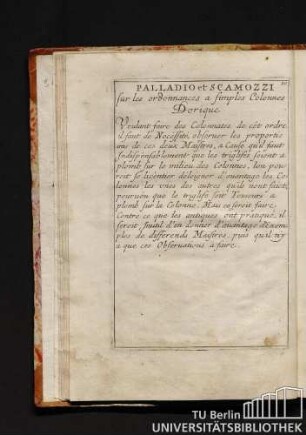 PALLADIO et SCAMOZZI
sur les ordonnances a simples Colonnes
Dorique.
Voulant faire des Colonnates de cét ordre,
il faut de Necessité, observer les proportions
de ces deux Maistres, a Cause qu'il faut
Indispensablement que les triglifs soient a
plomb sur le milieu des Colonnes,
d'avantage les Colonnes
les unes des autres qu'ils n'ont fait,
pourveu que le triglife soit Toujours a
plomb sur la Colonne, Mais ce seroit faire
Contre ce que les antiques ont pratiqué, il
seroit Inutil d'en donner d'avantage d'exemples
de differends Maistres, puis qu'il n'y
a que ces Observations a faire.
TU Berlin
UNIVERSITÄTSBIBLIOTHEK